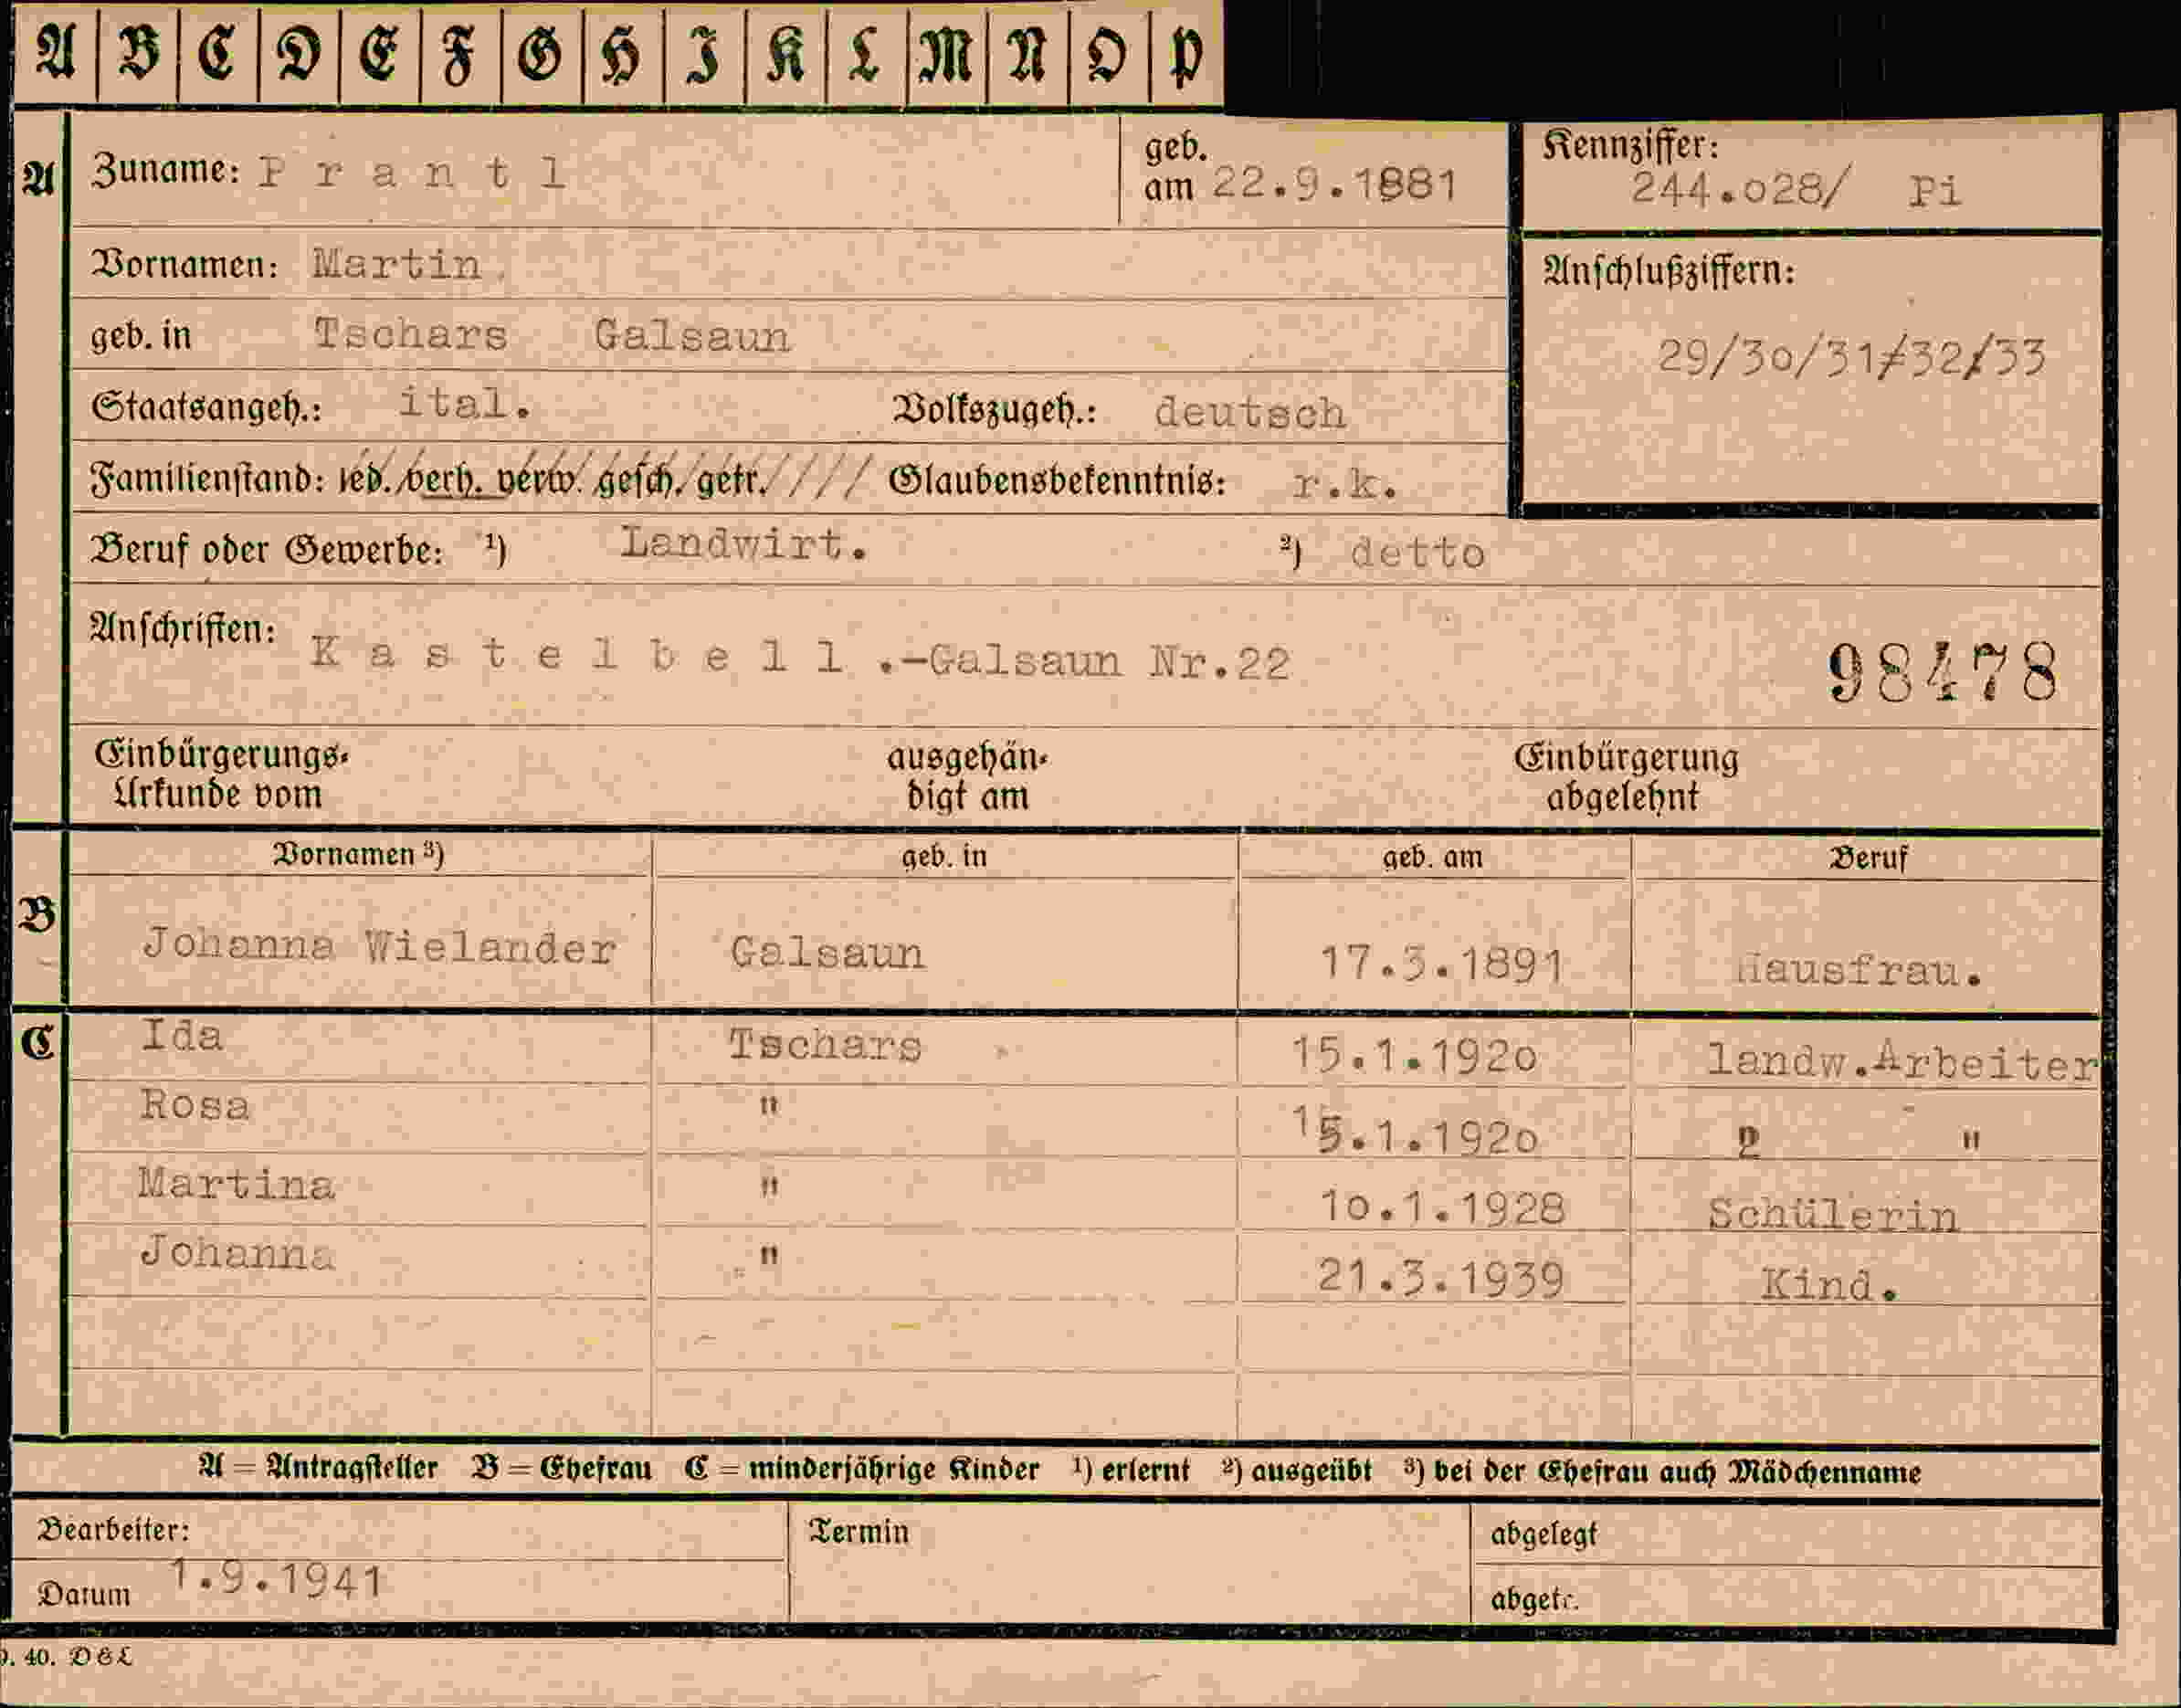 A B C D E F G H I K L M N O P
A Zuname: P r a n t l geb. am 22.9.1881 Kennziffer: 244.028/ Pi
Vornamen: Martin.
geb. in Tschars Galsaun Anschlußziffern: 29/30/31/32/33
Staatsangeh.: ital. Volkszugeh.: deutsch
Familienstand: led. verh. verw. gesch. getr. //// Glaubensbekenntnis: r.k.
Beruf oder Gewerbe: ¹) Landwirt. ²) detto
Anschriften: K a s t e l b e l l .-Galsaun Nr.22 98478
Einbürgerungs- ausgehän- Einbürgerung
Urkunde vom digt am abgelehnt
Vornamen ³) geb. in geb. am Beruf
B Johanna Wielander Galsaun 17.3.1891 Hausfrau.
C Ida Tschars 15.1.1920 landw.Arbeiter
Rosa " 15.1.1920 " "
Martina " 10.1.1928 Schülerin
Johanna " 21.3.1939 Kind.
A = Antragsteller B = Ehefrau C = minderjährige Kinder ¹) erlernt ²) ausgeübt ³) bei der Ehefrau auch Mädchenname
Bearbeiter: Termin abgelegt
Datum 1.9.1941 abgetr.
9. 40. D&L